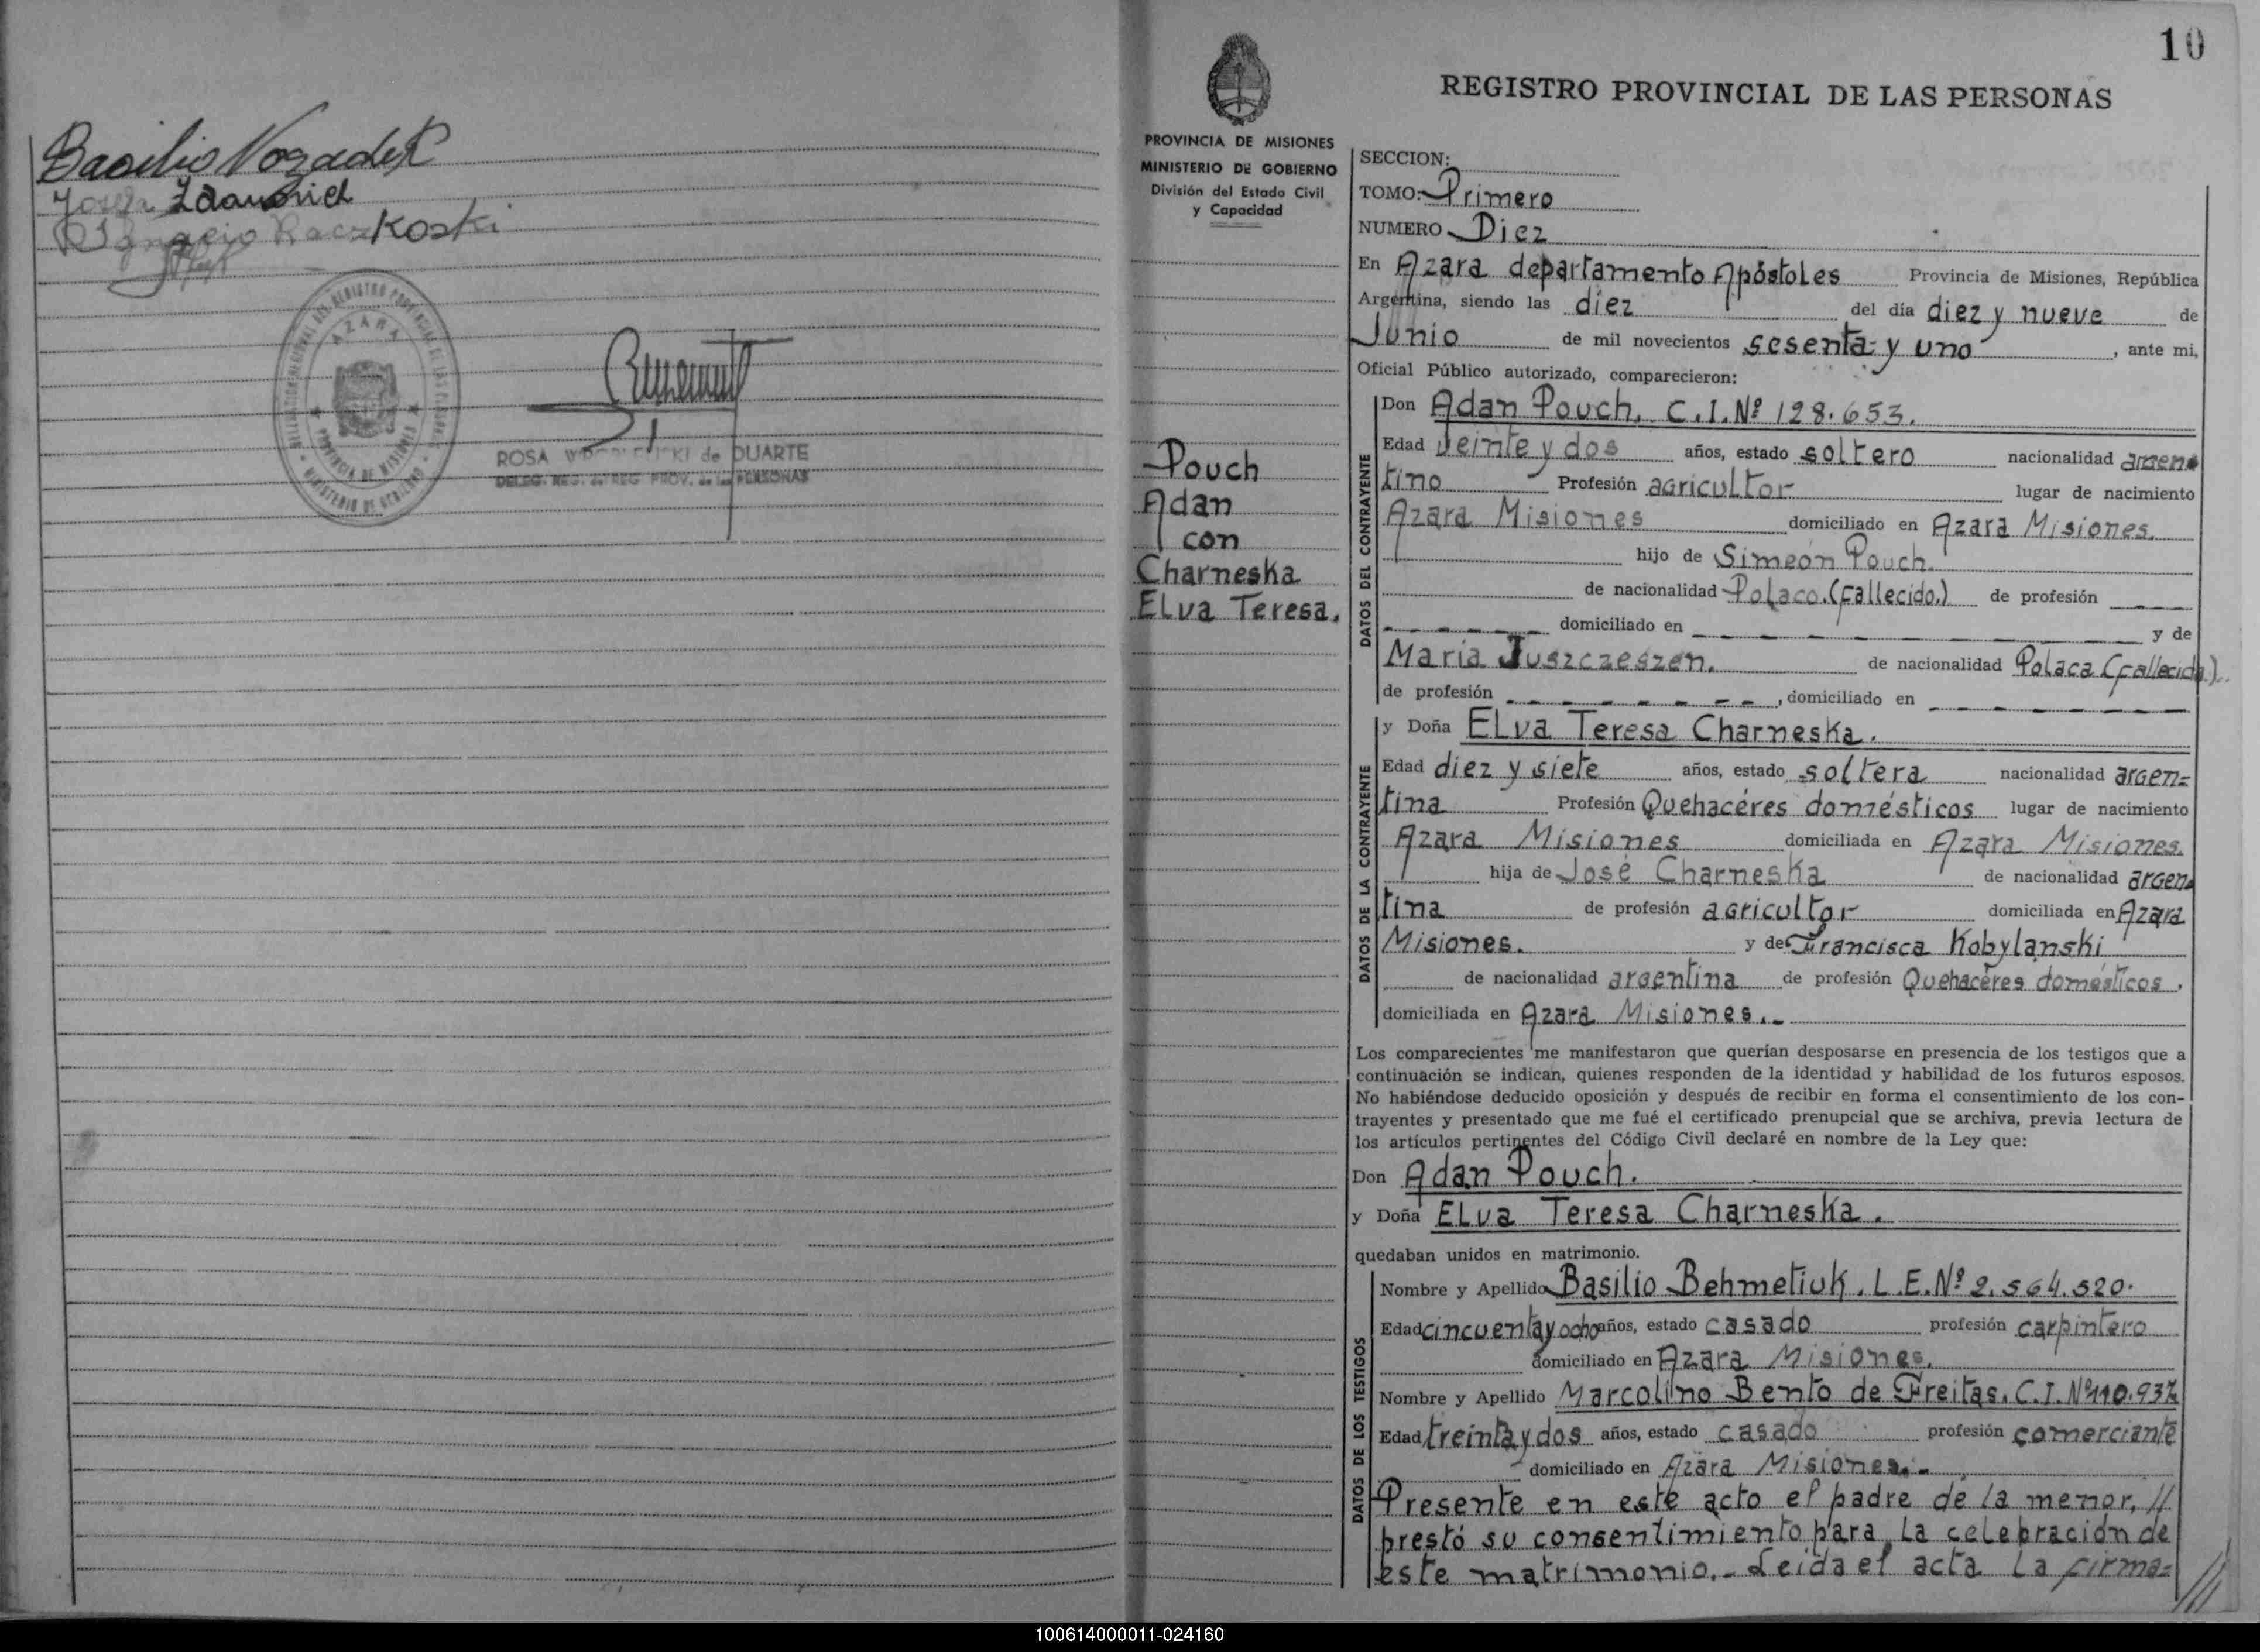 Basilio Nozadek
Josefa Zdanovich
Ignacio Raczkoski
AZARA
PROVINCIA DE MISIONES
MINISTERIO DE GOBIERNO
ROSA de DUARTE
DELEG. REG. del REG. PROV. de las PERSONAS
10
REGISTRO PROVINCIAL DE LAS PERSONAS
PROVINCIA DE MISIONES
MINISTERIO DE GOBIERNO
División del Estado Civil
y Capacidad
Pouch
Adan
con
Charneska
Elva Teresa.
SECCION:
TOMO: Primero
NUMERO Diez
En Azara departamento Apóstoles Provincia de Misiones, República
Argentina, siendo las diez del día diez y nueve de
Junio de mil novecientos sesenta y uno, ante mi,
Oficial Público autorizado, comparecieron:
DATOS DEL CONTRAYENTE
Don Adan Pouch. C.I.Nº 128.653.
Edad veinte y dos años, estado soltero nacionalidad argen=
tino Profesión agricultor lugar de nacimiento
Azara Misiones domiciliado en Azara Misiones.
hijo de Simeón Pouch.
de nacionalidad Polaco.(fallecido.) de profesión - - -
- - - - - - domiciliado en - - - - - - - y de
María Juszczeszen. de nacionalidad Polaca (fallecida).
de profesión - - - - - - - -, domiciliado en - - - - - - -
DATOS DE LA CONTRAYENTE
y Doña Elva Teresa Charneska.
Edad diez y siete años, estado soltera nacionalidad argen=
tina Profesión Quehacéres domésticos lugar de nacimiento
Azara Misiones domiciliada en Azara Misiones.
hija de José Charneska de nacionalidad argen=
tina de profesión agricultor domiciliada en Azara
Misiones. y de Francisca Kobylanski
de nacionalidad argentina de profesión Quehacéres domésticos.
domiciliada en Azara Misiones.-
Los comparecientes me manifestaron que querían desposarse en presencia de los testigos que a
continuación se indican, quienes responden de la identidad y habilidad de los futuros esposos.
No habiéndose deducido oposición y después de recibir en forma el consentimiento de los con-
trayentes y presentado que me fué el certificado prenupcial que se archiva, previa lectura de
los artículos pertinentes del Código Civil declaré en nombre de la Ley que:
Don Adan Pouch.
y Doña Elva Teresa Charneska.
quedaban unidos en matrimonio.
DATOS DE LOS TESTIGOS
Nombre y Apellido Basilio Behmetiuk. L.E.Nº 2.564.520.
Edad cincuenta y ocho años, estado casado profesión carpintero
domiciliado en Azara Misiones.
Nombre y Apellido Marcolino Bento de Freitas. C.I.Nº110.937
Edad treinta y dos años, estado casado profesión comerciante
domiciliado en Azara Misiones.-
Presente en este acto el padre de la menor, //
prestó su consentimiento para la celebración de
este matrimonio.- Leida el acta la firma=
100614000011-024160